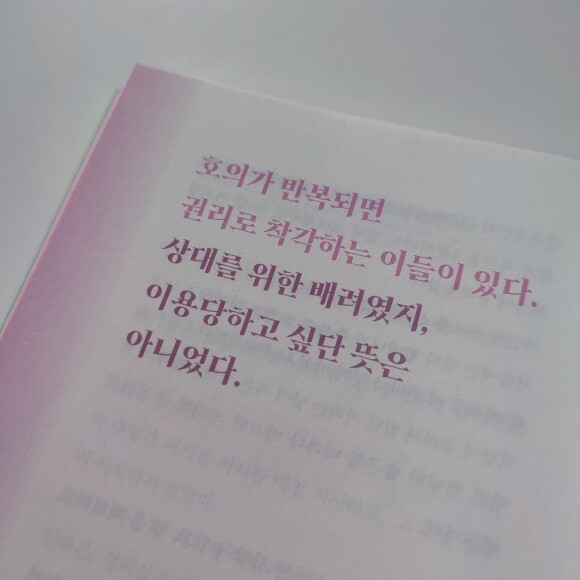 호의가 반복되면
권리로 착각하는 이들이 있다.
상대를 위한 배려였지,
이용당하고 싶단 뜻은
아니었다.